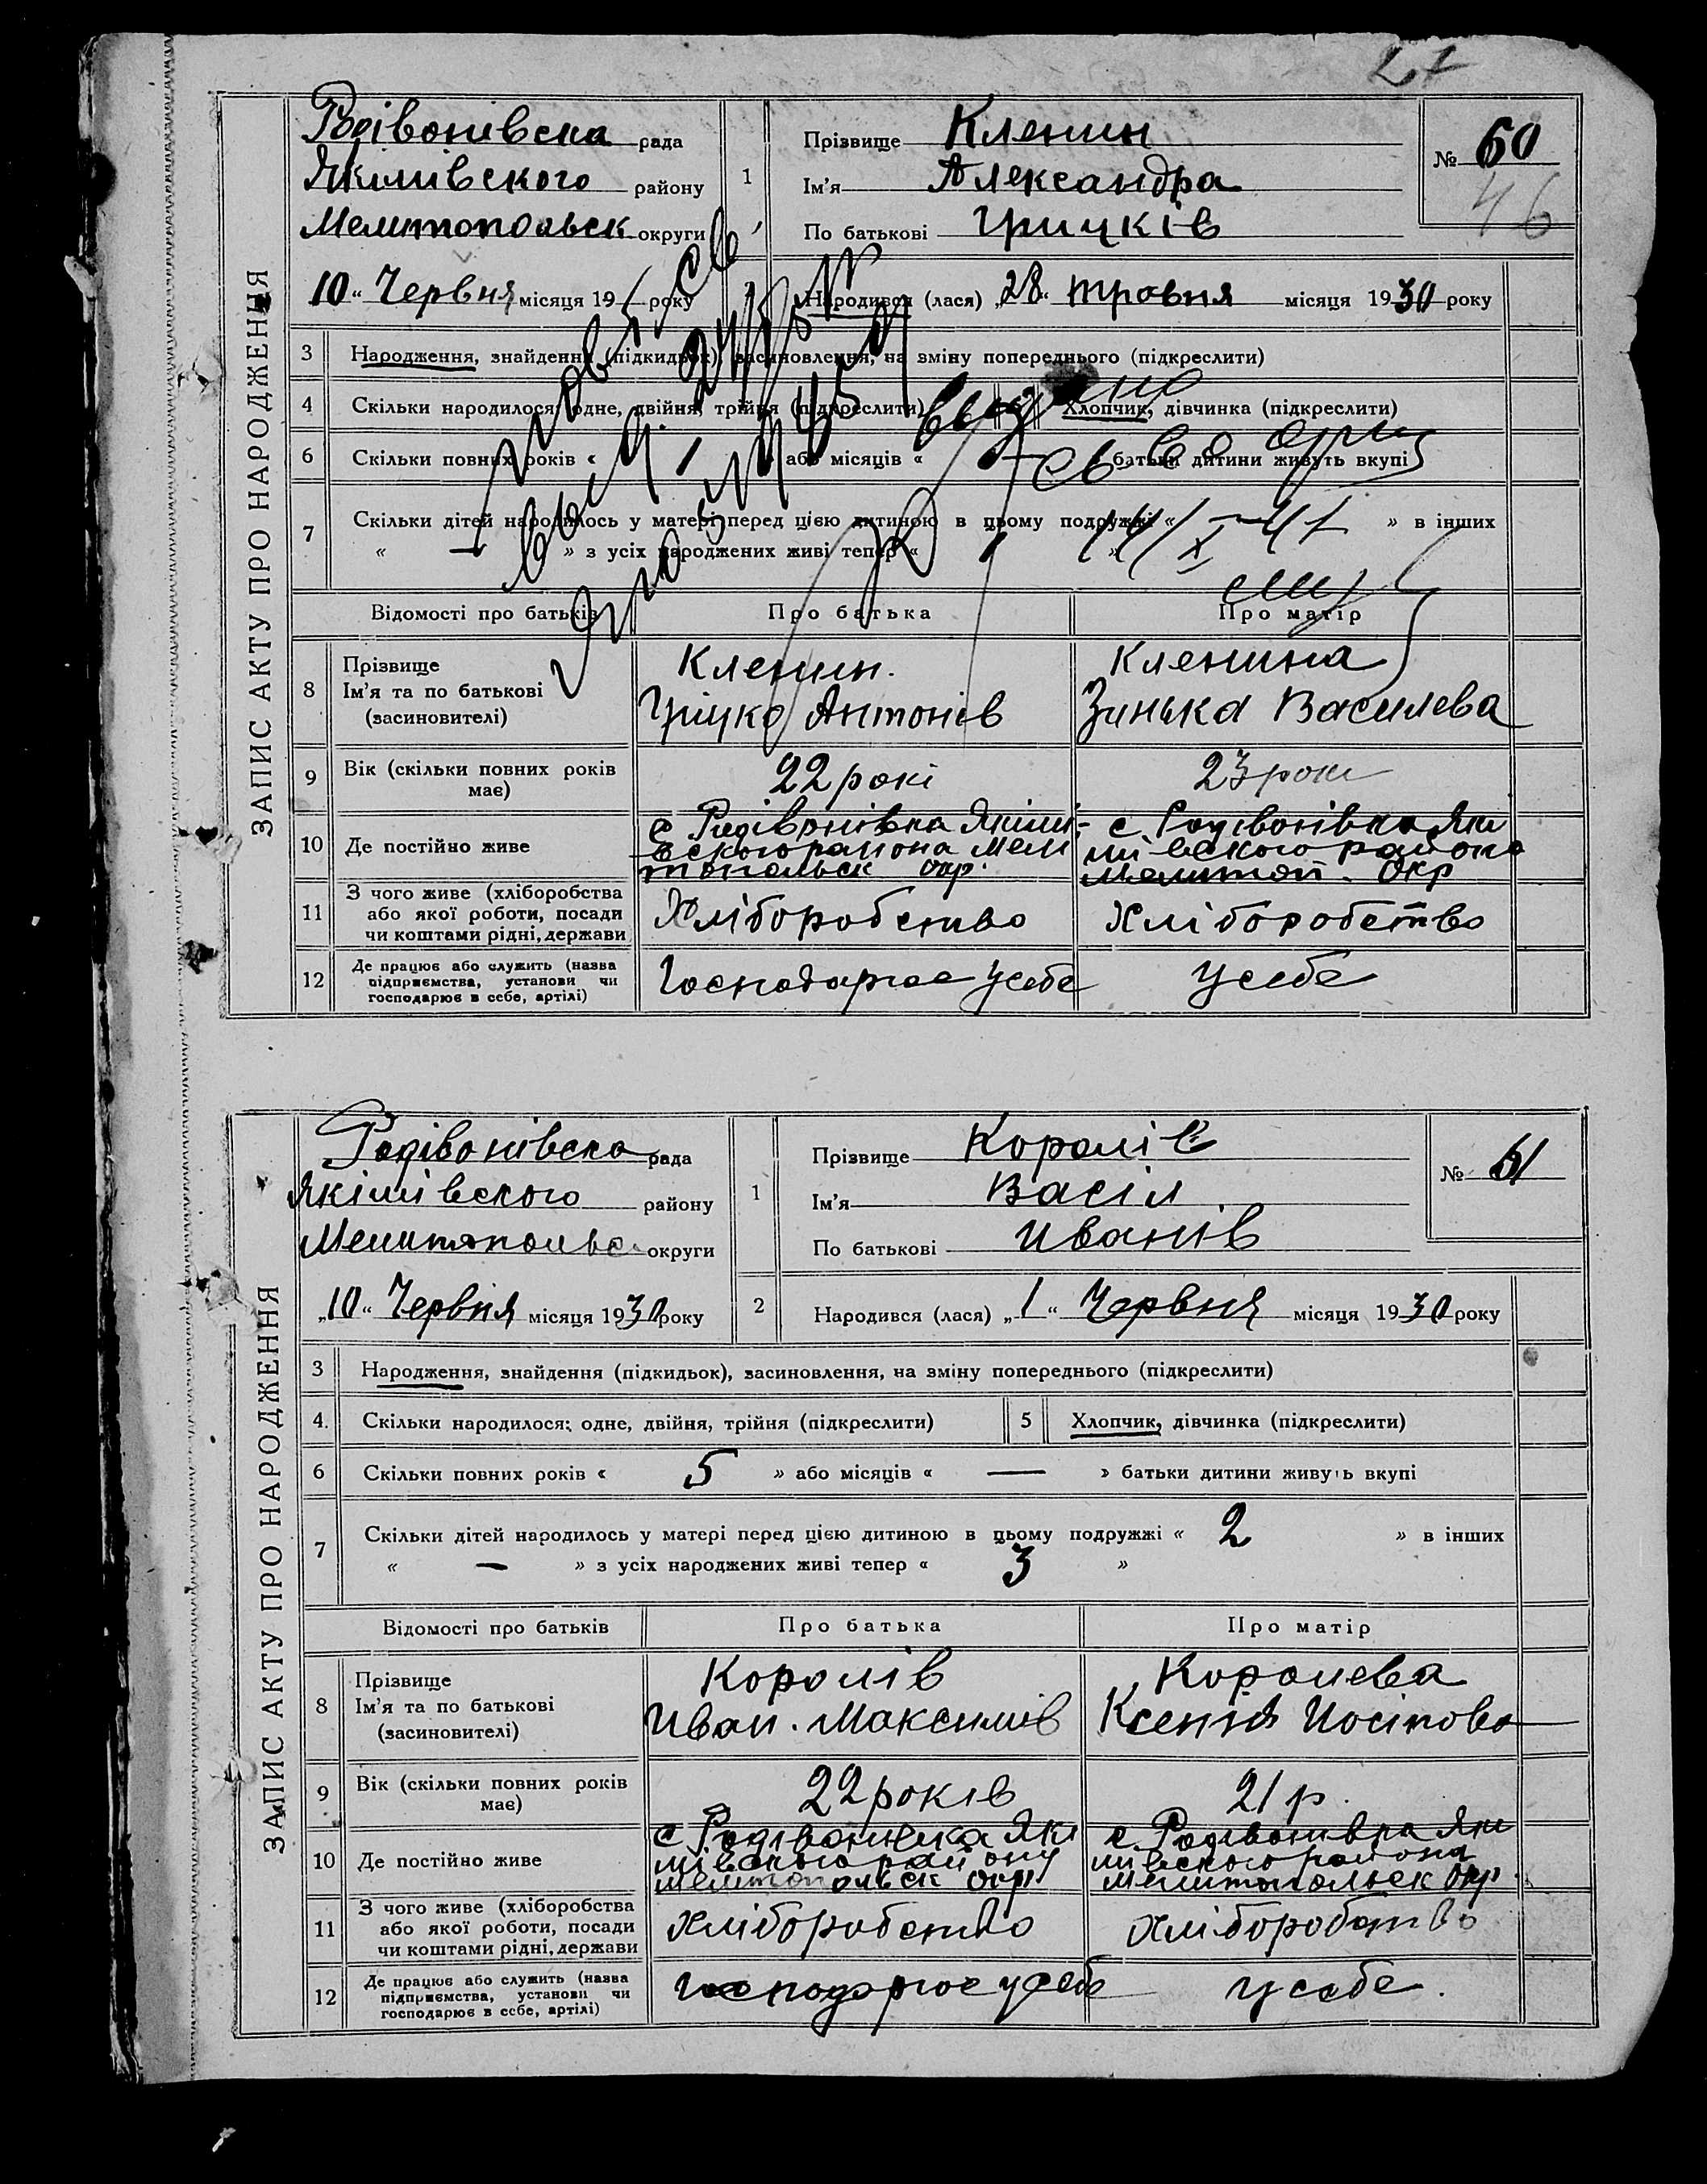 27
ЗАПИС АКТУ ПРО НАРОДЖЕННЯ
Родівонівска рада
Якімівского району
Мелитопольск округи
1
Прізвище Кленин
Ім'я Александра
По батькові Грицків
№ 60
46
10 " Червня місяця 19 року
Народився (лася) „28" травня місяця 1930 року
3 Народження, знайдення (підкидьок), засиновлення, на зміну попереднього (підкреслити)
4 Скільки народилося: одне, двійня, трійня (підкреслити) Хлопчик, дівчинка (підкреслити)
6 Скільки повних років « 1 » або місяців « — » батьки дитини живуть вкупі
7 Скільки дітей народилось у матері перед цією дитиною в цьому подружжі « » в інших
« — » з усіх народжених живі тепер « 1 »
Відомості про батьків Про батька Про матір
8 Прізвище
Ім'я та по батькові
(засиновителі)
Кленин.
Грицко Антонів
Кленина
Зинька Василева
9 Вік (скільки повних років має)
22 рокі
23 роки
10 Де постійно живе
с Родівонівка Якімі-
вского района Мели
топольск окр.
с Родівонівка Яки
мівского района
Мелитоп. Окр
11 З чого живе (хліборобства
або якої роботи, посади
чи коштами рідні, держави
Хліборобство
Хліборобство
12 Де працює або служить (назва
підприємства, установи чи
господарює в себе, артілі)
Господарює усебе
усебе
ЗАПИС АКТУ ПРО НАРОДЖЕННЯ
Родівонівска рада
Якімівского району
Мелитопольс округи
1
Прізвище Королів
Ім'я Васіл
По батькові Иванів
№ 61
„10" Червня місяця 1930 року
2 Народився (лася) „1" Червня місяця 1930 року
3 Народження, знайдення (підкидьок), засиновлення, на зміну попереднього (підкреслити)
4. Скільки народилося: одне, двійня, трійня (підкреслити) 5 Хлопчик, дівчинка (підкреслити)
6 Скільки повних років « 5 » або місяців « — » батьки дитини живуть вкупі
7 Скільки дітей народилось у матері перед цією дитиною в цьому подружжі « 2 » в інших
« — » з усіх народжених живі тепер « 3 »
Відомості про батьків Про батька Про матір
8 Прізвище
Ім'я та по батькові
(засиновителі)
Королів
Иван. Максимів
Королева
Ксенія Иосіпова
9 Вік (скільки повних років має)
22 років
21 р.
10 Де постійно живе
с Родівонівка Які
мівского району
Мелитопольск окр
с Родівонівка Яки
мівского района
Мелитопольск Окр.
11 З чого живе (хліборобства
або якої роботи, посади
чи коштами рідні, держави
Хліборобство
Хліборобство
12 Де працює або служить (назва
підприємства, установи чи
господарює в себе, артілі)
Господарює усебе
усебе.